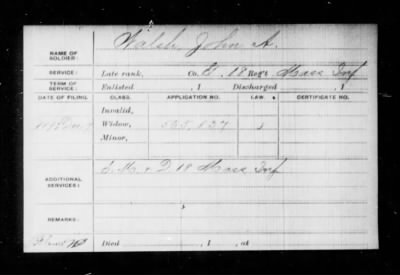 Walsh, John A.
NAME OF SOLDIER:
SERVICE: Late rank, Co. G, 18 Reg't Mass Inf
TERM OF SERVICE: Enlisted , 1 Discharged , 1
DATE OF FILING. CLASS. APPLICATION NO. LAW. CERTIFICATE NO.
Invalid,
Widow, 565,837
Minor,
ADDITIONAL SERVICES: 18 Mass Inf
REMARKS:
Died , 1 , at